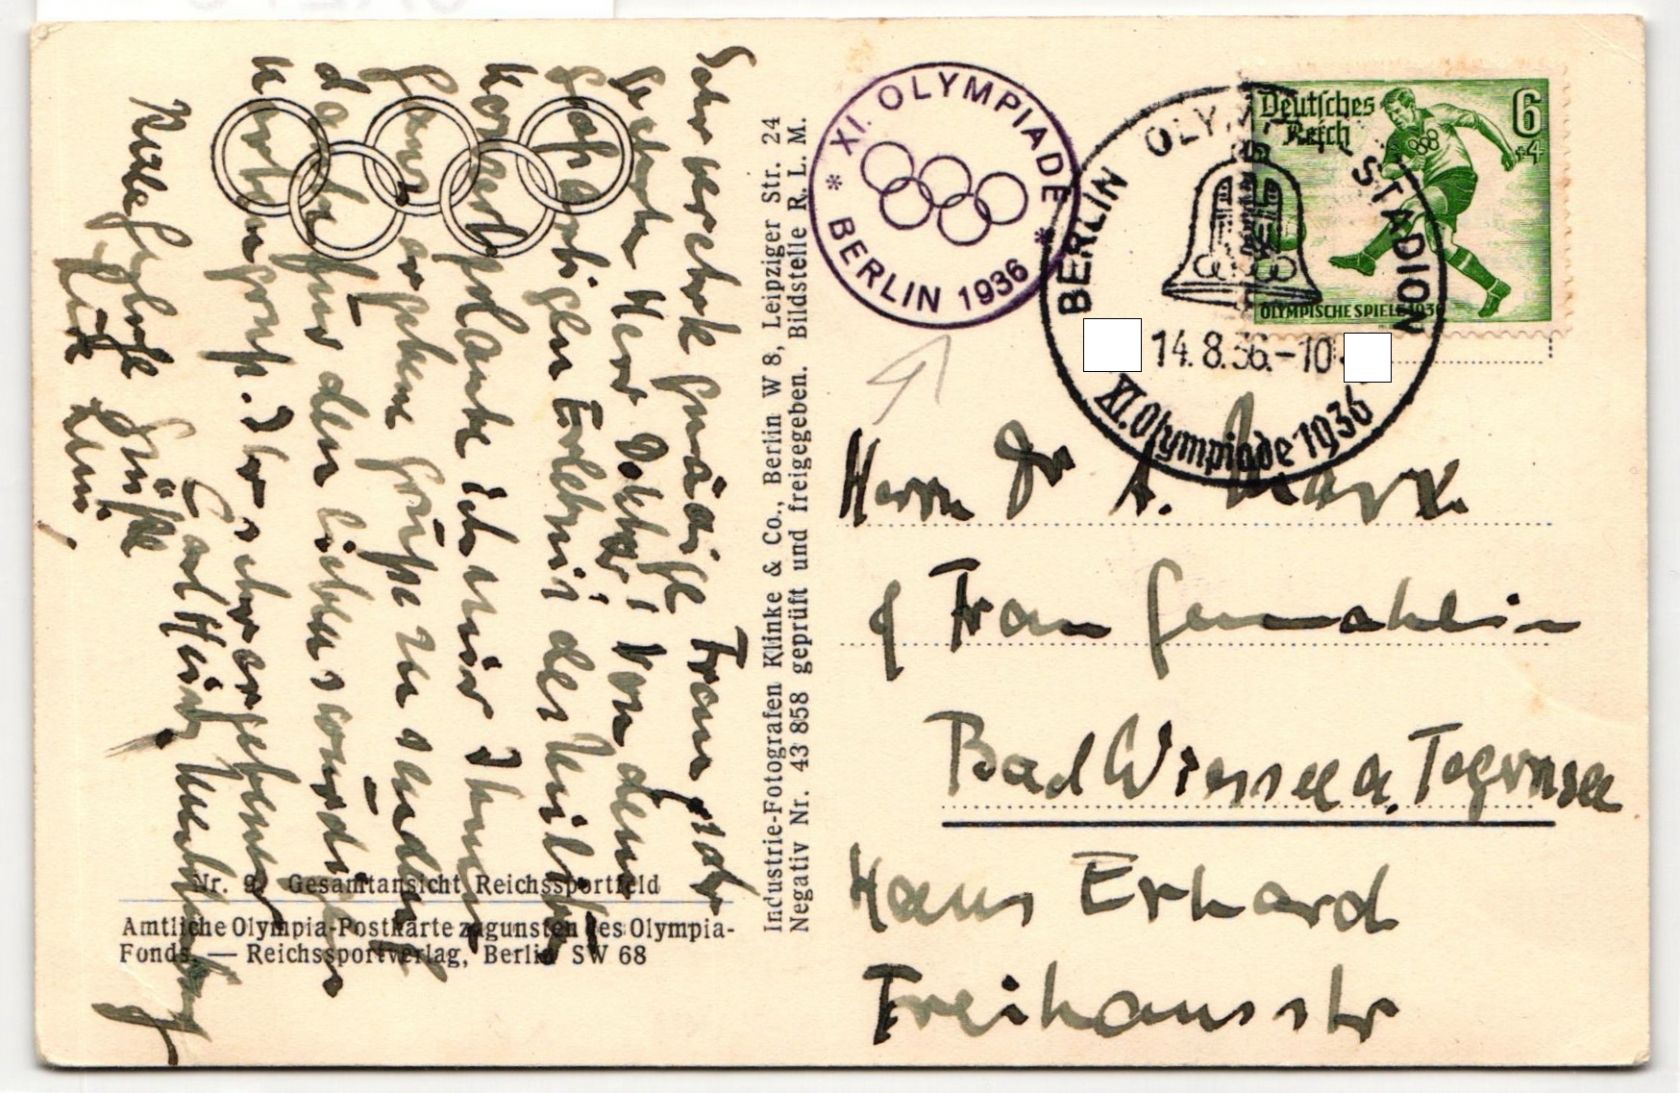 Sehr verehrte gnädige Frau, sehr
geehrter Herr Doktor! Von dem
großartigen Erlebnis der
Konzerte erlaube ich mir Ihnen
ganz ergebene Grüße zu senden
danke für den lieben
Ihr sehr ergebener
Carl Heinz
Viele herzliche Grüße
Industrie-Fotografen Klinke & Co., Berlin W 8, Leipziger Str. 24
Negativ Nr. 43 858 geprüft und freigegeben. Bildstelle R. L. M.
Nr. 9. Gesamtansicht Reichssportfeld
Amtliche Olympia-Postkarte zugunsten des Olympia-
Fonds. — Reichssportverlag, Berlin SW 68
* XI. OLYMPIADE *
BERLIN 1936
BERLIN OLYMPIA-STADION
14.8.36.-10
XI. Olympiade 1936
Deutsches
Reich
6
+4
OLYMPISCHE SPIELE 1936
Herrn Dr A. Marx
& Frau Gemahlin
Bad Wiessee a. Tegernsee
Haus Erhard
Freihausstr